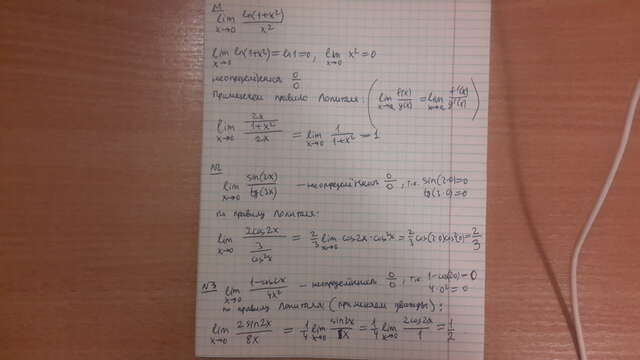 №1
lim x→0 ln(1+x²)/x²
lim x→0 ln(1+x²) = ln1 = 0, lim x→0 x² = 0
неопределённ 0/0
Применяем правило Лопиталя: (lim x→a f(x)/g(x) = lim x→a f'(x)/g'(x))
lim x→0 (2x/(1+x²))/2x = lim x→0 1/(1+x²) = 1
№2
lim x→0 sin(2x)/tg(3x) – неопределённ 0/0, т.к. sin(2·0)=0
tg(3·0)=0
по правилу Лопиталя:
lim x→0 2cos2x/(3/cos²3x) = 2/3 lim x→0 cos2x·cos²3x = 2/3 cos(2·0)cos²(3·0) = 2/3
№3 lim x→0 (1-cos2x)/4x² – неопределённ 0/0, т.к. 1-cos(2·0)=0
4·0²=0
по правилу Лопиталя: (применяем дважды):
lim x→0 2sin2x/8x = 1/4 lim x→0 sin2x/x = 1/4 lim x→0 2cos2x/1 = 1/2